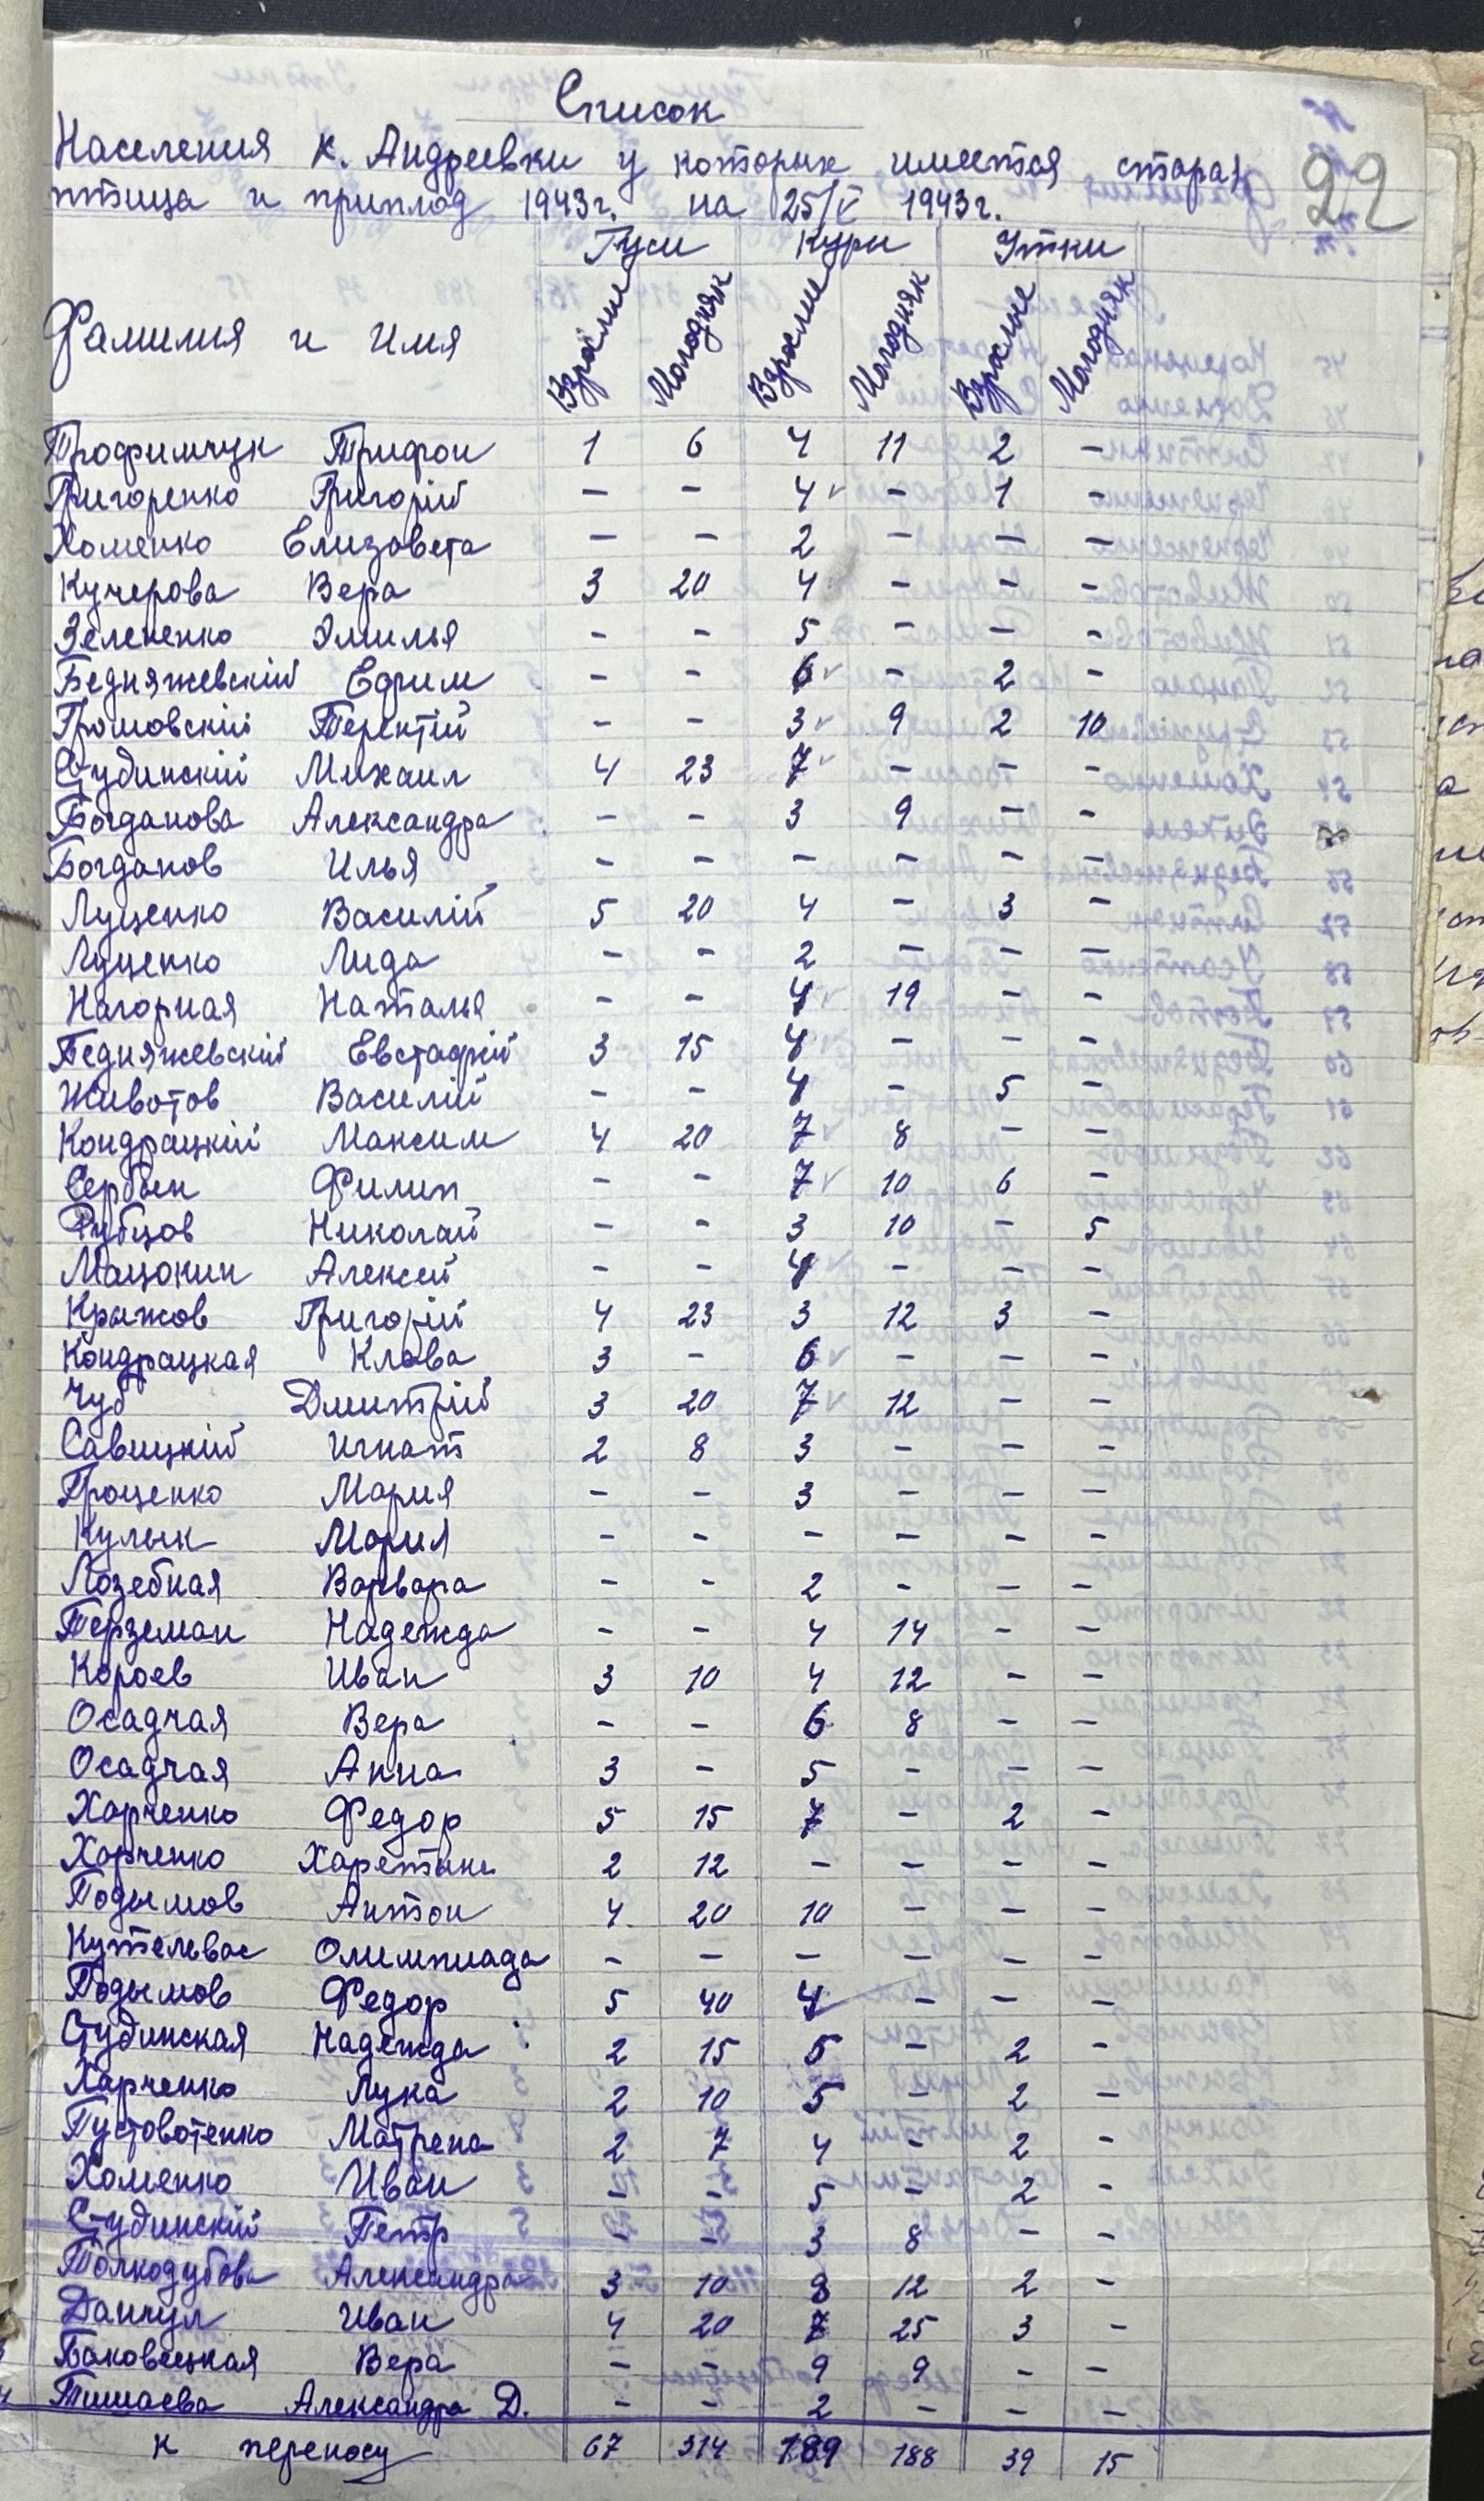 Список
92
Населения к. Андреевки у которых имеется старая
птица и приплод 1943г. на 25/V 1943г.
Гуси Куры Утки
Фамилия и Имя Взрослые Молодняк Взрослые Молодняк Взрослые Молодняк
Трофимчук Трифон 1 6 4 11 2 -
Григоренко Григорій - - 4 - 1 -
Хоменко Елизовета - - 2 - - -
Кучерова Вера 3 20 4 - - -
Зелененко Эмилья - - 5 - - -
Бедняжевскій Ефрим - - 6 - 2 -
Громовскій Терентій - - 3 9 2 10
Студинскій Михаил 4 23 7 - - -
Богданова Александра - - 3 9 - -
Богданов Илья - - - - - -
Луценко Василій 5 20 4 - 3 -
Луценко Лида - - 2 - - -
Нагорная Наталья - - 4 19 - -
Бедняжевскій Евстафій 3 15 4 - - -
Животов Василій - - 4 - 5 -
Кондрацкій Максим 4 20 7 8 - -
Сербын Филип - - 7 10 6 -
Рубцов Николай - - 3 10 - 5
Мацокин Алексей - - 4 - - -
Крыжов Григорій 4 23 3 12 3 -
Кондрацкая Клава 3 - 6 - - -
Чуб Дмитрій 3 20 7 12 - -
Савицкій Игнат 2 8 3 - - -
Проценко Мария - - 3 - - -
Кулык Мария - - - - - -
Лозебная Варвара - - 2 - - -
Терземан Надежда - - 4 14 - -
Короев Иван 3 10 4 12 - -
Осадчая Вера - - 6 8 - -
Осадчая Анна 3 - 5 - - -
Харченко Федор 5 15 7 - 2 -
Харченко Харетына 2 12 - - - -
Подымов Антон 4 20 10 - - -
Кутельвас Олимпиада - - - - - -
Подымов Федор 5 40 4 - - -
Студинская Надежда 2 15 5 - 2 -
Харченко Лука 2 10 5 - 2 -
Пустовотенко Матрена 2 7 4 - 2 -
Хоменко Иван - - 5 - 2 -
Студинскій Петр - - 3 8 - -
Толкодубова Александра 3 10 8 12 2 -
Данчул Иван 4 20 7 25 3 -
Баковецкая Вера - - 9 9 - -
Тишаева Александра Д. - - 2 - - -
к переносу 67 314 189 188 39 15